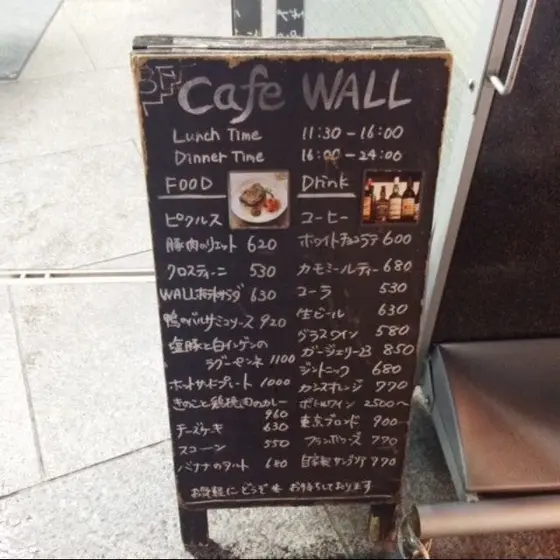 3F
Cafe WALL
Lunch Time 11:30-16:00
Dinner Time 16:00-24:00
FOOD
ピクルス
豚肉のリエット 620
クロスティーニ 530
WALLポテトサラダ 630
鴨のバルサミコソース 920
塩豚と白インゲンの
ラグーペンネ 1100
ホットサンドプレート 1000
きのこと鶏挽肉のカレー
960
チーズケーキ 630
スコーン 550
バナナのタルト 680
Drink
コーヒー
ホワイトチョコラテ 600
カモミールティー 680
コーラ 530
生ビール 630
グラスワイン 580
ガージェリー23 850
ジントニック 680
カシスオレンジ 770
ボトルワイン 2500〜
東京ブロンド 900
フランボワーズ 770
自家製サングリア 770
お気軽にどうぞ お待ちしております